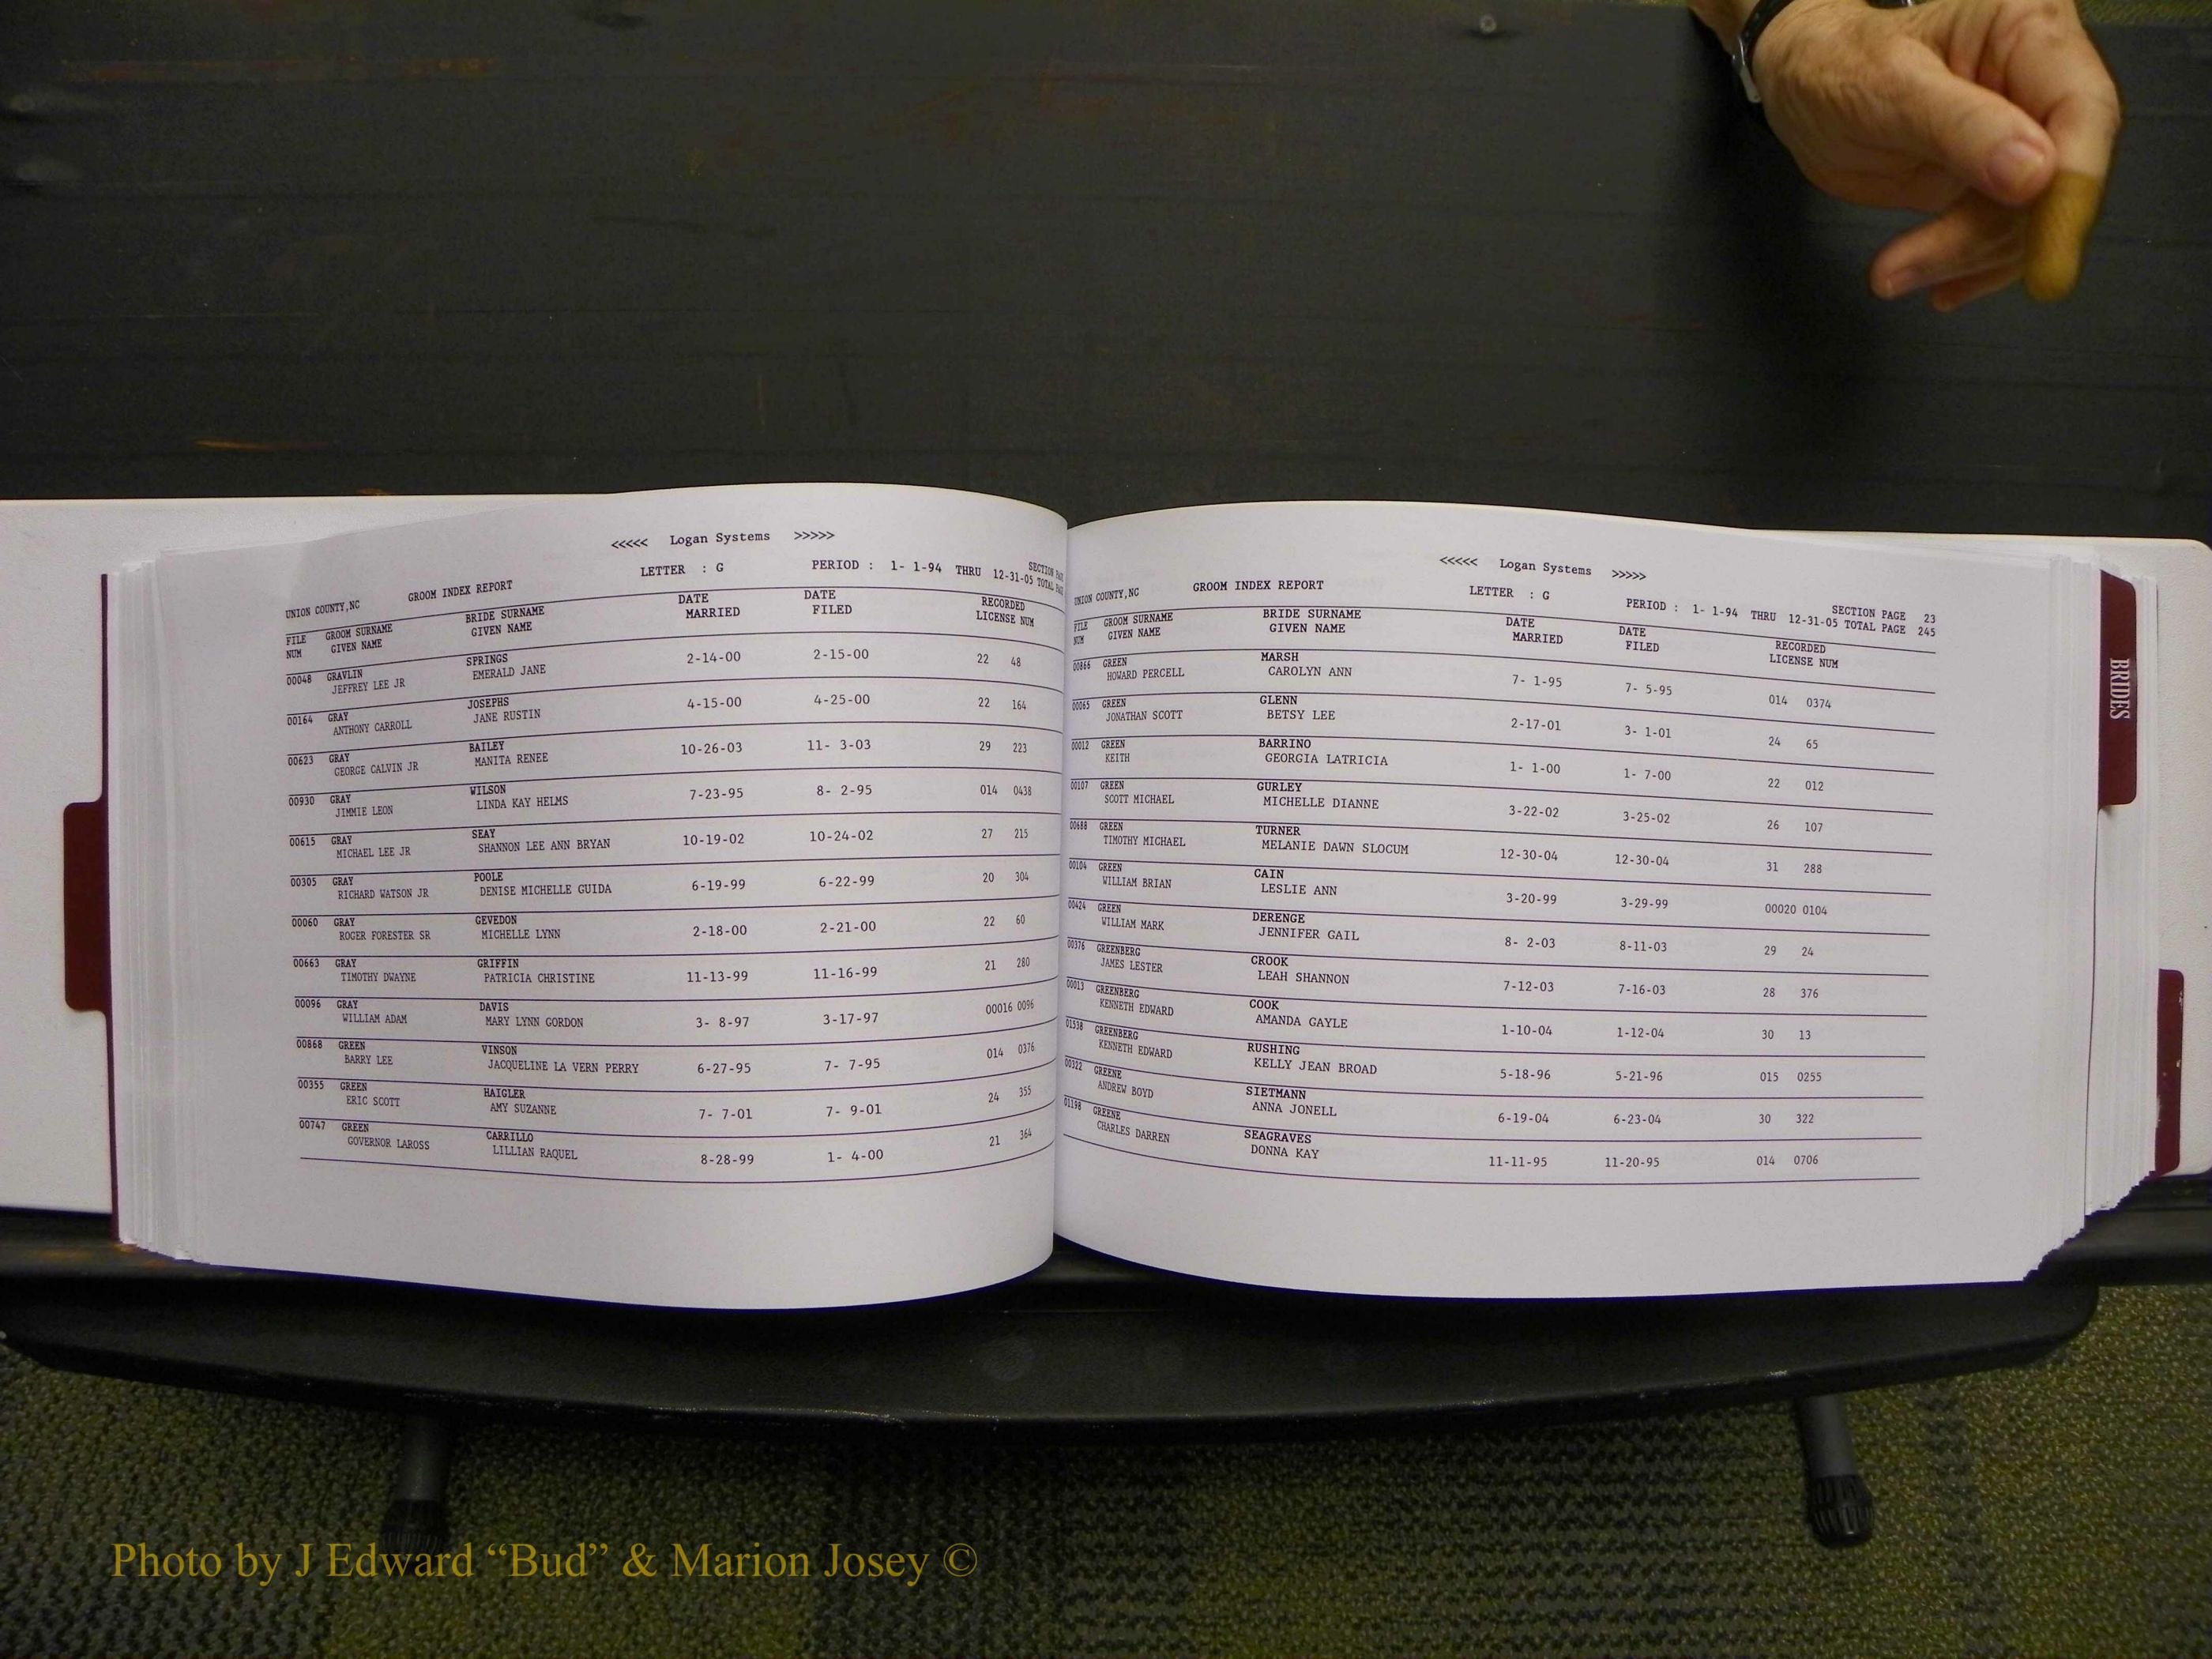 <<<<< Logan Systems >>>>>
UNION COUNTY,NC GROOM INDEX REPORT LETTER : G PERIOD : 1- 1-94 THRU 12-31-05 SECTION
TOTAL
FILE GROOM SURNAME BRIDE SURNAME DATE DATE RECORDED
NUM GIVEN NAME GIVEN NAME MARRIED FILED LICENSE NUM
00048 GRAVLIN SPRINGS 2-14-00 2-15-00 22 48
JEFFREY LEE JR EMERALD JANE
00164 GRAY JOSEPHS 4-15-00 4-25-00 22 164
ANTHONY CARROLL JANE RUSTIN
00623 GRAY BAILEY 10-26-03 11- 3-03 29 223
GEORGE CALVIN JR MANITA RENEE
00930 GRAY WILSON 7-23-95 8- 2-95 014 0438
JIMMIE LEON LINDA KAY HELMS
00615 GRAY SEAY 10-19-02 10-24-02 27 215
MICHAEL LEE JR SHANNON LEE ANN BRYAN
00305 GRAY POOLE 6-19-99 6-22-99 20 304
RICHARD WATSON JR DENISE MICHELLE GUIDA
00060 GRAY GEVEDON 2-18-00 2-21-00 22 60
ROGER FORESTER SR MICHELLE LYNN
00663 GRAY GRIFFIN 11-13-99 11-16-99 21 280
TIMOTHY DWAYNE PATRICIA CHRISTINE
00096 GRAY DAVIS 3- 8-97 3-17-97 00016 0096
WILLIAM ADAM MARY LYNN GORDON
00868 GREEN VINSON 6-27-95 7- 7-95 014 0376
BARRY LEE JACQUELINE LA VERN PERRY
00355 GREEN HAIGLER 7- 7-01 7- 9-01 24 355
ERIC SCOTT AMY SUZANNE
00747 GREEN CARRILLO 8-28-99 1- 4-00 21 364
GOVERNOR LAROSS LILLIAN RAQUEL
<<<<< Logan Systems >>>>>
UNION COUNTY,NC GROOM INDEX REPORT LETTER : G PERIOD : 1- 1-94 THRU 12-31-05 SECTION PAGE 23
TOTAL PAGE 245
FILE GROOM SURNAME BRIDE SURNAME DATE DATE RECORDED
NUM GIVEN NAME GIVEN NAME MARRIED FILED LICENSE NUM
00866 GREEN MARSH 7- 1-95 7- 5-95 014 0374
HOWARD PERCELL CAROLYN ANN
00065 GREEN GLENN 2-17-01 3- 1-01 24 65
JONATHAN SCOTT BETSY LEE
00012 GREEN BARRINO 1- 1-00 1- 7-00 22 012
KEITH GEORGIA LATRICIA
00107 GREEN GURLEY 3-22-02 3-25-02 26 107
SCOTT MICHAEL MICHELLE DIANNE
00688 GREEN TURNER 12-30-04 12-30-04 31 288
TIMOTHY MICHAEL MELANIE DAWN SLOCUM
00104 GREEN CAIN 3-20-99 3-29-99 00020 0104
WILLIAM BRIAN LESLIE ANN
00424 GREEN DERENGE 8- 2-03 8-11-03 29 24
WILLIAM MARK JENNIFER GAIL
00376 GREENBERG CROOK 7-12-03 7-16-03 28 376
JAMES LESTER LEAH SHANNON
00013 GREENBERG COOK 1-10-04 1-12-04 30 13
KENNETH EDWARD AMANDA GAYLE
01538 GREENBERG RUSHING 5-18-96 5-21-96 015 0255
KENNETH EDWARD KELLY JEAN BROAD
00322 GREENE SIETMANN 6-19-04 6-23-04 30 322
ANDREW BOYD ANNA JONELL
01198 GREENE SEAGRAVES 11-11-95 11-20-95 014 0706
CHARLES DARREN DONNA KAY
BRIDES
Photo by J Edward “Bud” & Marion Josey ©